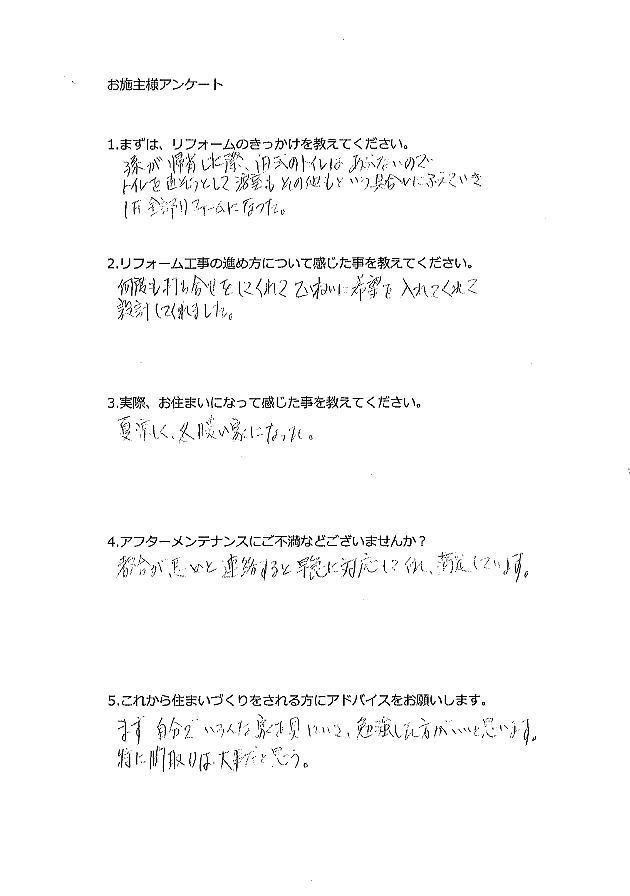 お施主様アンケート
1.まずは、リフォームのきっかけを教えてください。
孫が帰省した際、旧式のトイレはあぶないので
トイレを直そうとして 浴室も その他もという具合に ふえていき
1F 全部リフォームになった。
2.リフォーム工事の進め方について感じた事を教えてください。
何度も打ち合せをしてくれて ていねいに希望を 入れてくれて
設計してくれました。
3.実際、お住まいになって感じた事を教えてください。
夏涼しく、冬暖い家になった。
4.アフターメンテナンスにご不満などございませんか？
都合が悪いと 連絡すると 早急に対応してくれ、満足しています。
5.これから住まいづくりをされる方にアドバイスをお願いします。
まず 自分で いろんな家を見にいき、勉強した方がいいと思います。
特に間取りは大事だと思う。